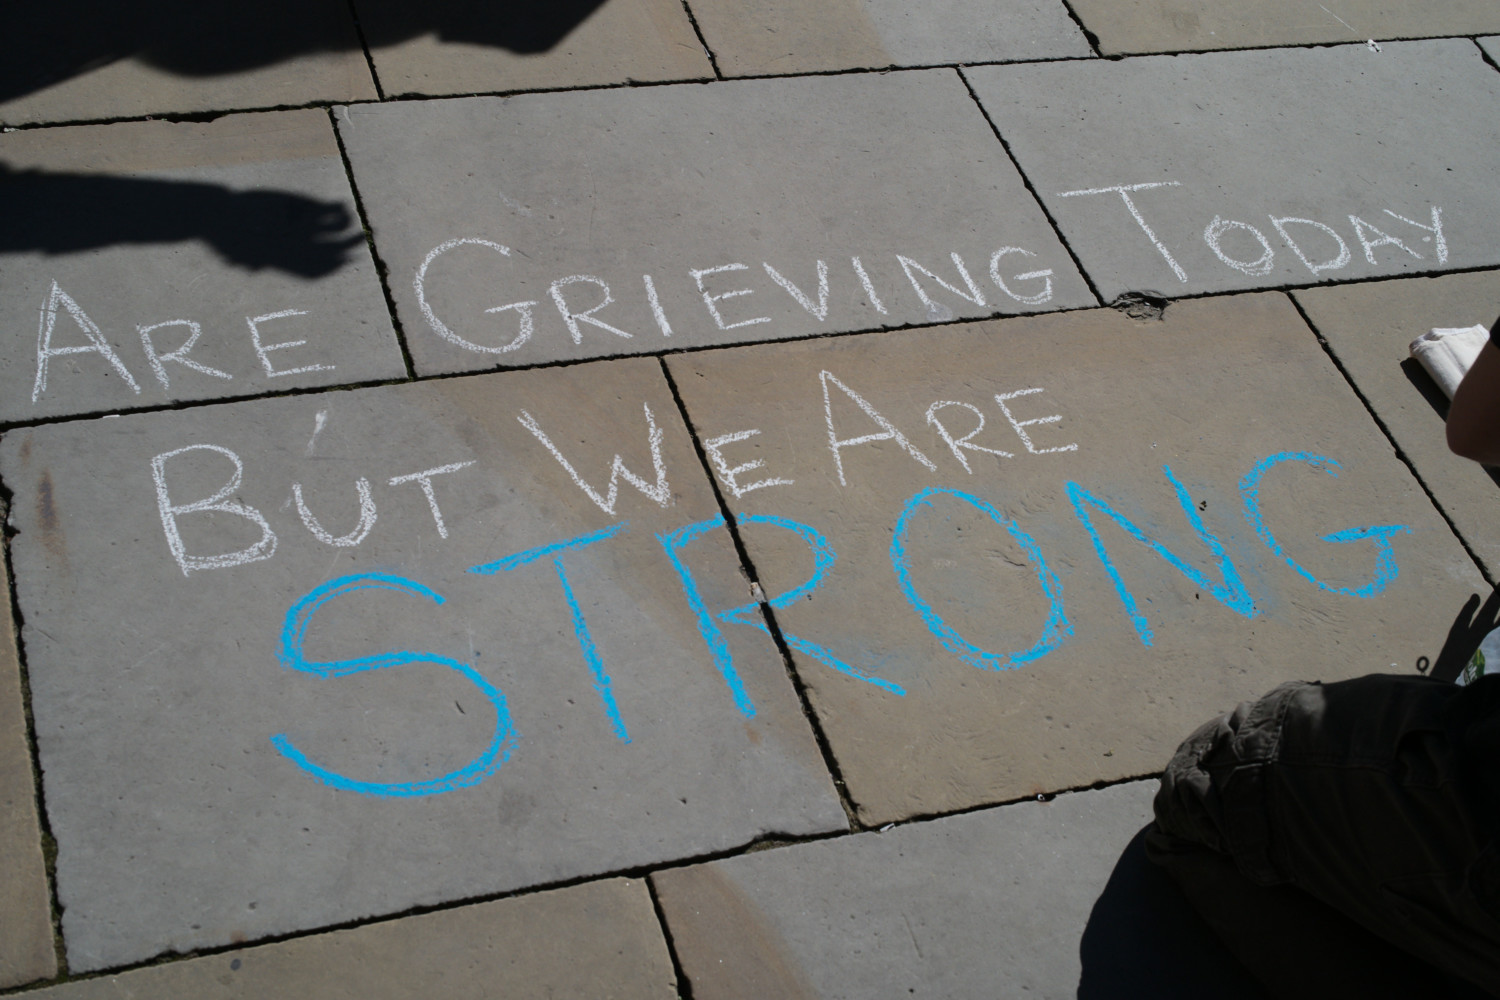 ARE GRIEVING TODAY
BUT WE ARE
STRONG